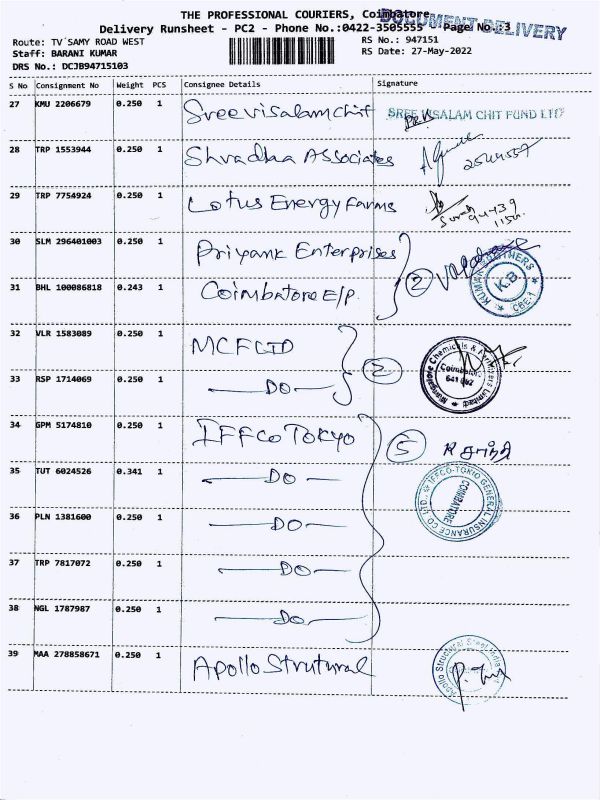 THE PROFESSIONAL COURIERS, Coimbatore
DOCUMENT DELIVERY
Delivery Runsheet - PC2 - Phone No.:0422-3505555 Page No.:3
Route: TV`SAMY ROAD WEST RS No.: 947151
Staff: BARANI KUMAR RS Date: 27-May-2022
DRS No.: DCJB94715103
S No Consignment No Weight PCS Consignee Details Signature
27 KMU 2206679 0.250 1 Sreevisalamchit SREE VISALAM CHIT FUND LTD
28 TRP 1553944 0.250 1 Shradhaa Associates
29 TRP 7754924 0.250 1 Lotus Energy Farms
30 SLM 296401003 0.250 1 Priyank Enterprises 2
KUMAR BROTHERS K.B CBE-1
31 BHL 100086818 0.243 1 Coimbatore E/P.
32 VLR 1583089 0.250 1 MCFLTD 2
Mangalore Chemicals & Fertilizers Limited Coimbatore
33 RSP 1714069 0.250 1 -DO-
34 GPM 5174810 0.250 1 IFFCO TOKYO 5
35 TUT 6024526 0.341 1 -DO-
IFFCO-TOKIO GENERAL INSURANCE CO. LTD. COIMBATORE
36 PLN 1381600 0.250 1 -DO-
37 TRP 7817072 0.250 1 -DO-
38 NGL 1787987 0.250 1 -DO-
39 MAA 278858671 0.250 1 Apollo Strutural